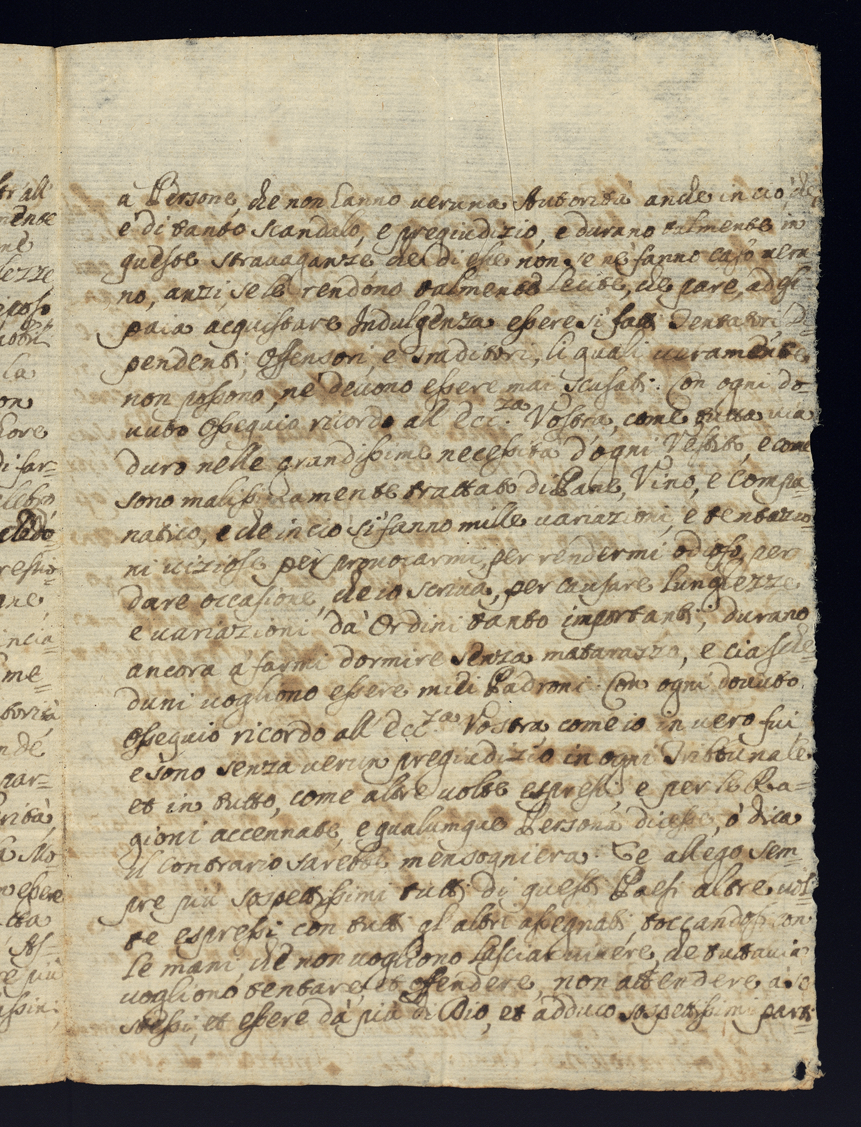 a Persone, che non hanno veruna Autorità anche in ciò, che
è di tanto scandalo, e pregiudizio, e durano talmente in
queste stravaganze che di esse non se ne fanno caso veru
no, anzi, se le rendono talmente lecite, che pare, ad essi
paia acquistare Indulgenza essere si fatti Tentatori, Di=
pendenti, Offensori, e Traditori, li quali veramente
non possono, ne devono essere mai scusati. Con ogni do=
vuto Ossequio ricordo all'Ecc.za Vostra, come tutta via
duro nelle grandissime necessità d'ogni Vestito, e come
sono malissimamente trattato di Pane, Vino, e Compa=
natico, e che in ciò si fanno mille variazioni, e tentazio=
ni viziose per provocarmi, per rendermi odioso, per
dare occasione, che io scriva, per causare lunghezze
e variazioni dà Ordini tanto importanti; durano
ancora a farmi dormire senza matarazzo, e ciasche=
duni vogliono essere miei Padroni. Con ogni dovuto
Ossequio ricordo all'Ecc.za Vostra come io in vero fui
e sono senza verun pregiudizio in ogni Tribunale
et in tutto, come altre volte espressi, e per le Ra=
gioni accennate, e qualumque Persona dicesse, ò dica
il contrario sarebbe mensogniera. Le allego sem=
pre più sospettissimi tutti di questi Paesi altre vol=
te espressi con tutti gl'altri assegnati toccandosi con
le mani, che non vogliono lasciar vivere, che tuttavia
vogliono tentare, et offendere, non attendere a se
stessi, et essere dà più di Dio, et adduco sospettissimi parti=